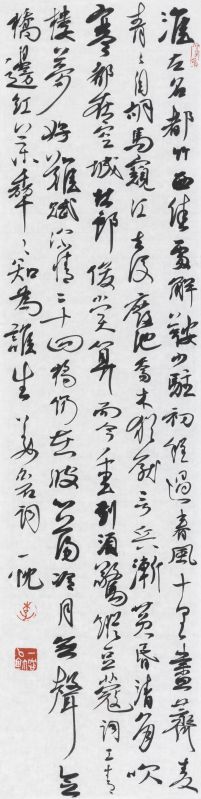 淮左名都竹西佳處解鞍少駐初程過春風十里盡薺麥
青々自胡馬窺江去後廢池喬木猶厭言兵漸黃昏清角吹
寒都在空城杜郎俊賞算而今重到須驚縱豆蔻詞工青
樓夢好難賦深情二十四橋仍在波心蕩冷月無聲念
橋邊紅藥年々知為誰生 姜詞 一
李